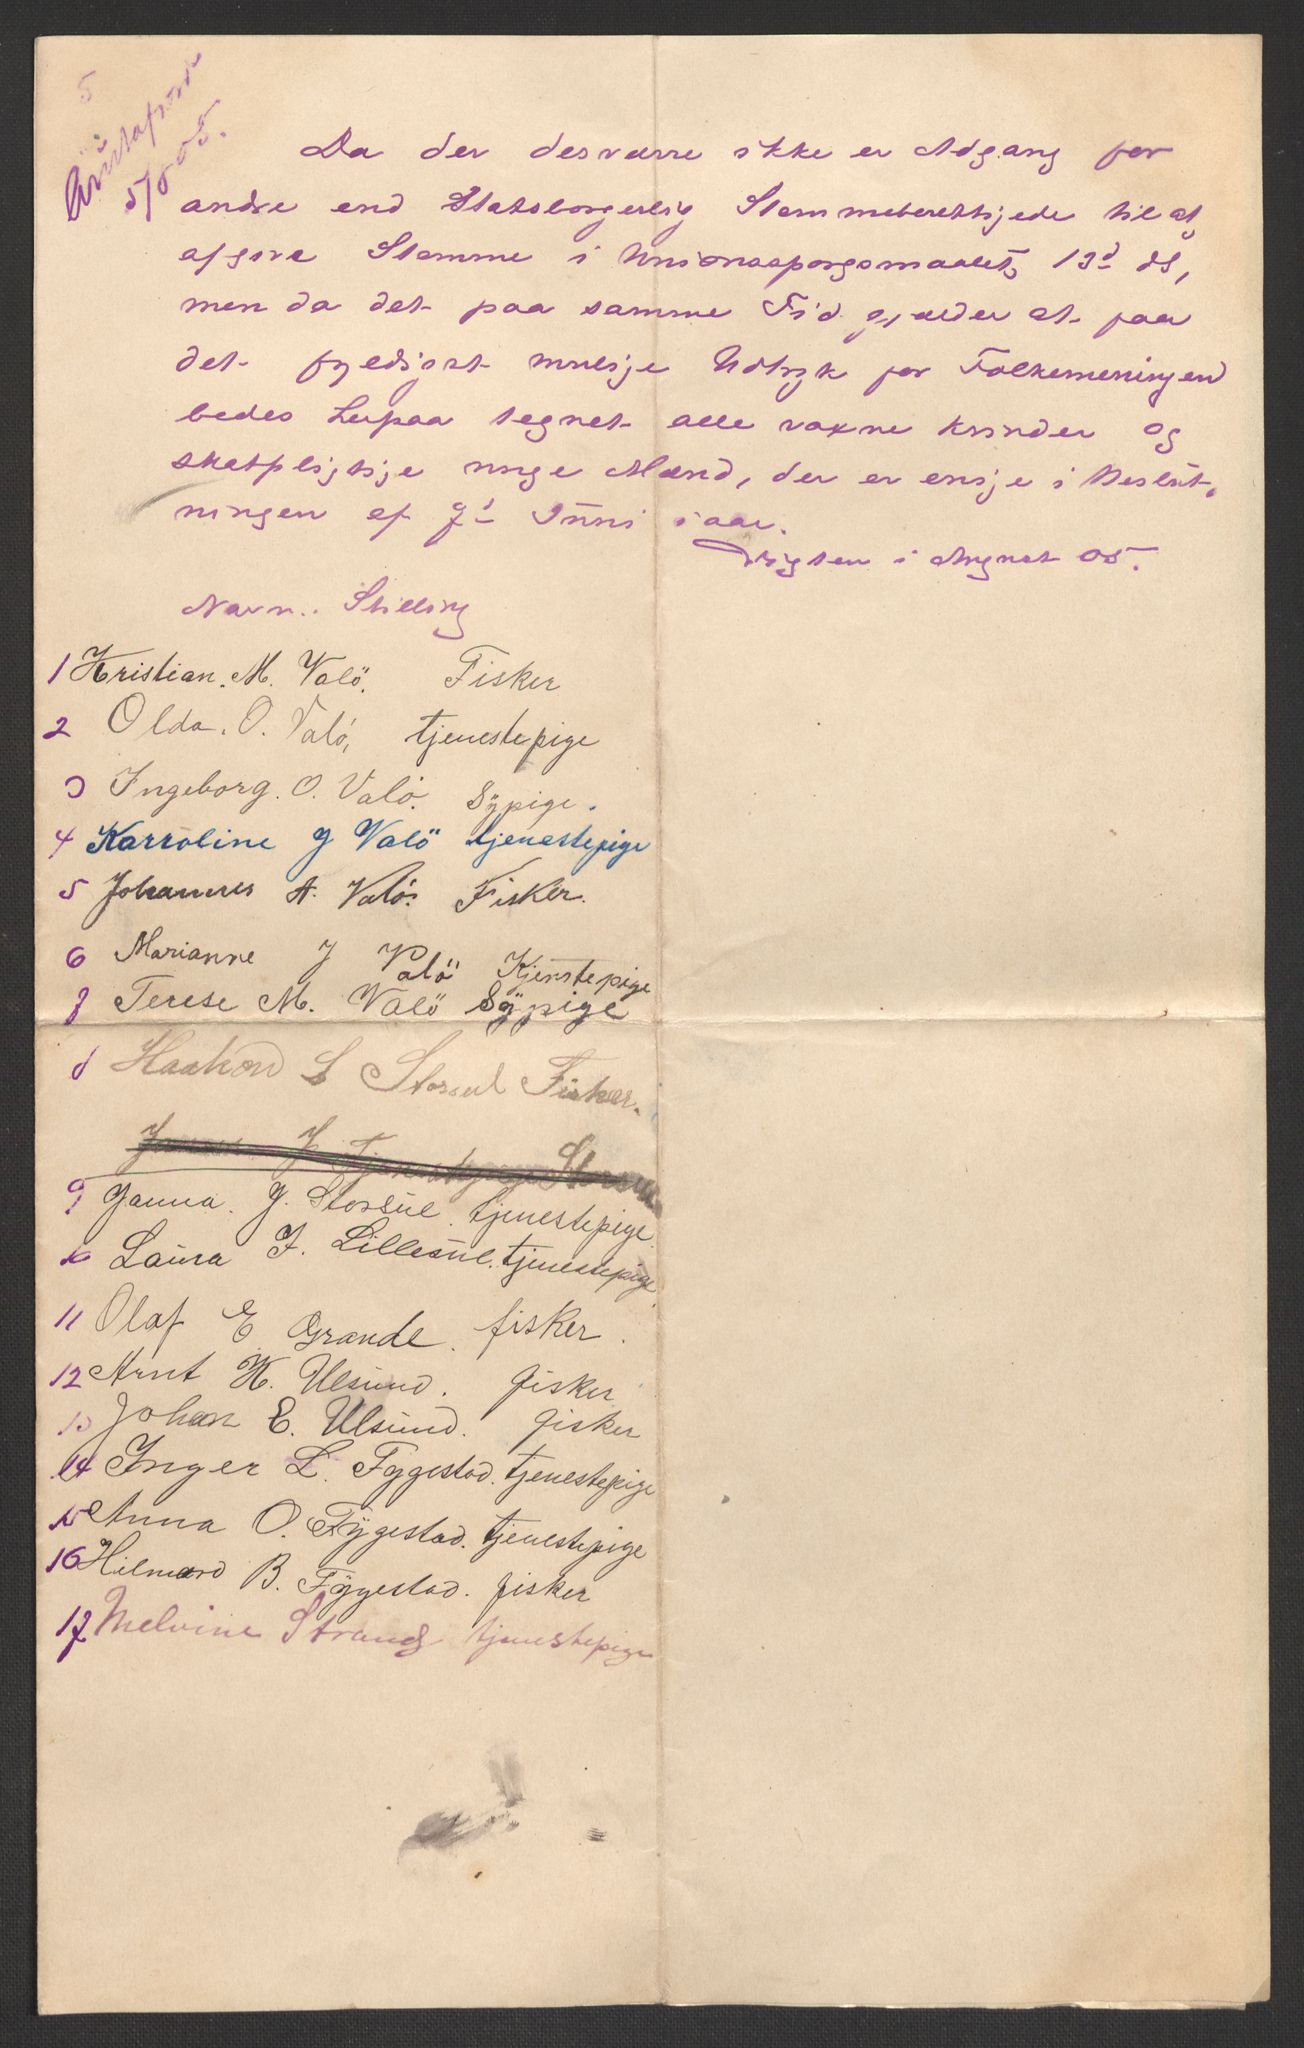 5
5/8 05.
Da der desværre ikke er Adgang for
andre end Statsborgerlig Stemmeberettigede til at
afgive Stemme i Unionsspørgsmaalet, 13d ds,
men da det paa samme Tid gjælder at faa
det fyldigst mulige Udtryk for Folkemeningen
bedes herpaa tegnet alle voxne Kvinder og
skatpligtige unge Mænd, der er enige i Beslut-
ningen af 7d Juni iaar.
Vigten i August 05.
Navn. Stilling
1 Kristian. M. Valö. Fisker
2 Olda. O. Valö, tjenestepige
3 Ingeborg. O. Valö. Sypige.
4 Karroline J Valö tjenestepige
5 Johannes A. Valö. Fisker.
6 Marianne J Valö Kjenstepige
7 Terese M. Valö Sÿpige
8 Haakon L Storsul Fisker.
J Tjenestepige Storsul
9 Janna. J. Storsul. tjenestepige.
10 Laura I. Lillesul. tjenestepige
11 Olaf E Grande. fisker.
12 Arnt K. Ulsund. fisker
13 Johan E. Ulsund. fisker
14 Inger L. Fyggestad. tjenestepige
15 Anna O. Fÿgestad. tjenestepige
16 Hilmard B. Fÿggestad. fisker
17 Melvine Strand tjenstepige